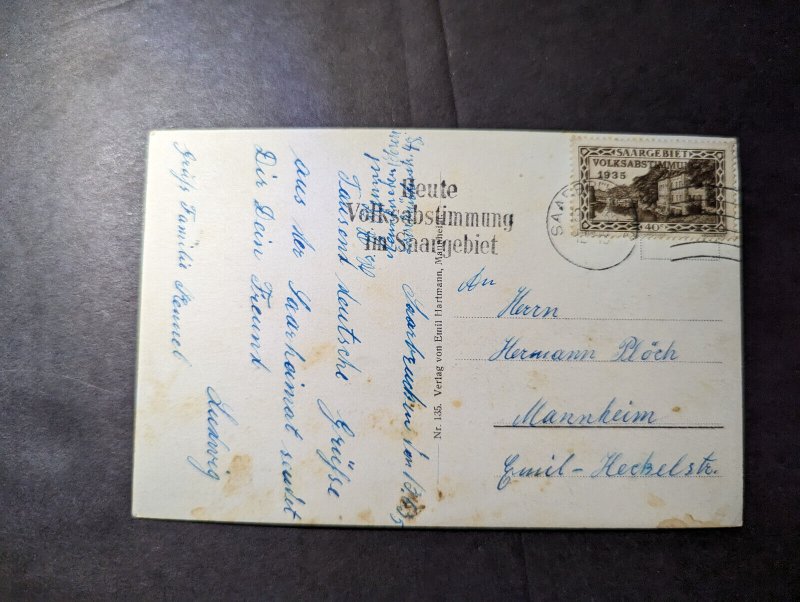 SAARGEBIET
VOLKSABSTIMMUNG
1935
40
Heute
Volksabstimmung
im Saargebiet
Nr. 135. Verlag von Emil Hartmann, Mannheim
Saarbrücken
Tausend deutsche Grüsse
aus der Saarheimat sendet
Dir Dein Freund
Ludwig
Grüß Familie
An
Herrn
Hermann Plöch
Mannheim
Emil-Heckelstr.